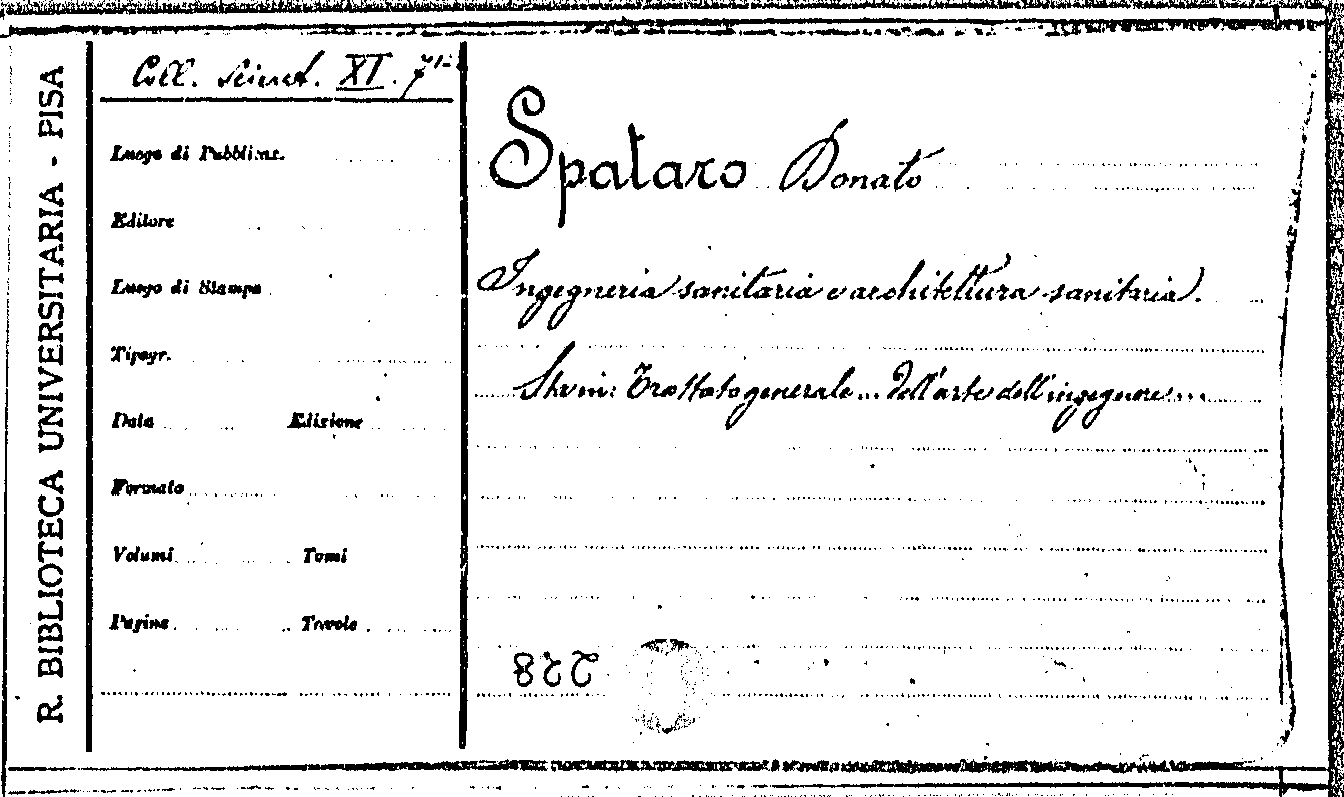 R. BIBLIOTECA UNIVERSITARIA - PISA
Coll. Scient. XI. 7
Luogo di Pubblicaz.
Editore
Luogo di Stampa
Tipogr.
Data Edizione
Formato
Volumi Tomi
Pagine Tavole
Spataro Donato
Ingegneria sanitaria e architettura sanitaria.
Trattato generale... dell'arte dell'ingegnere...
822